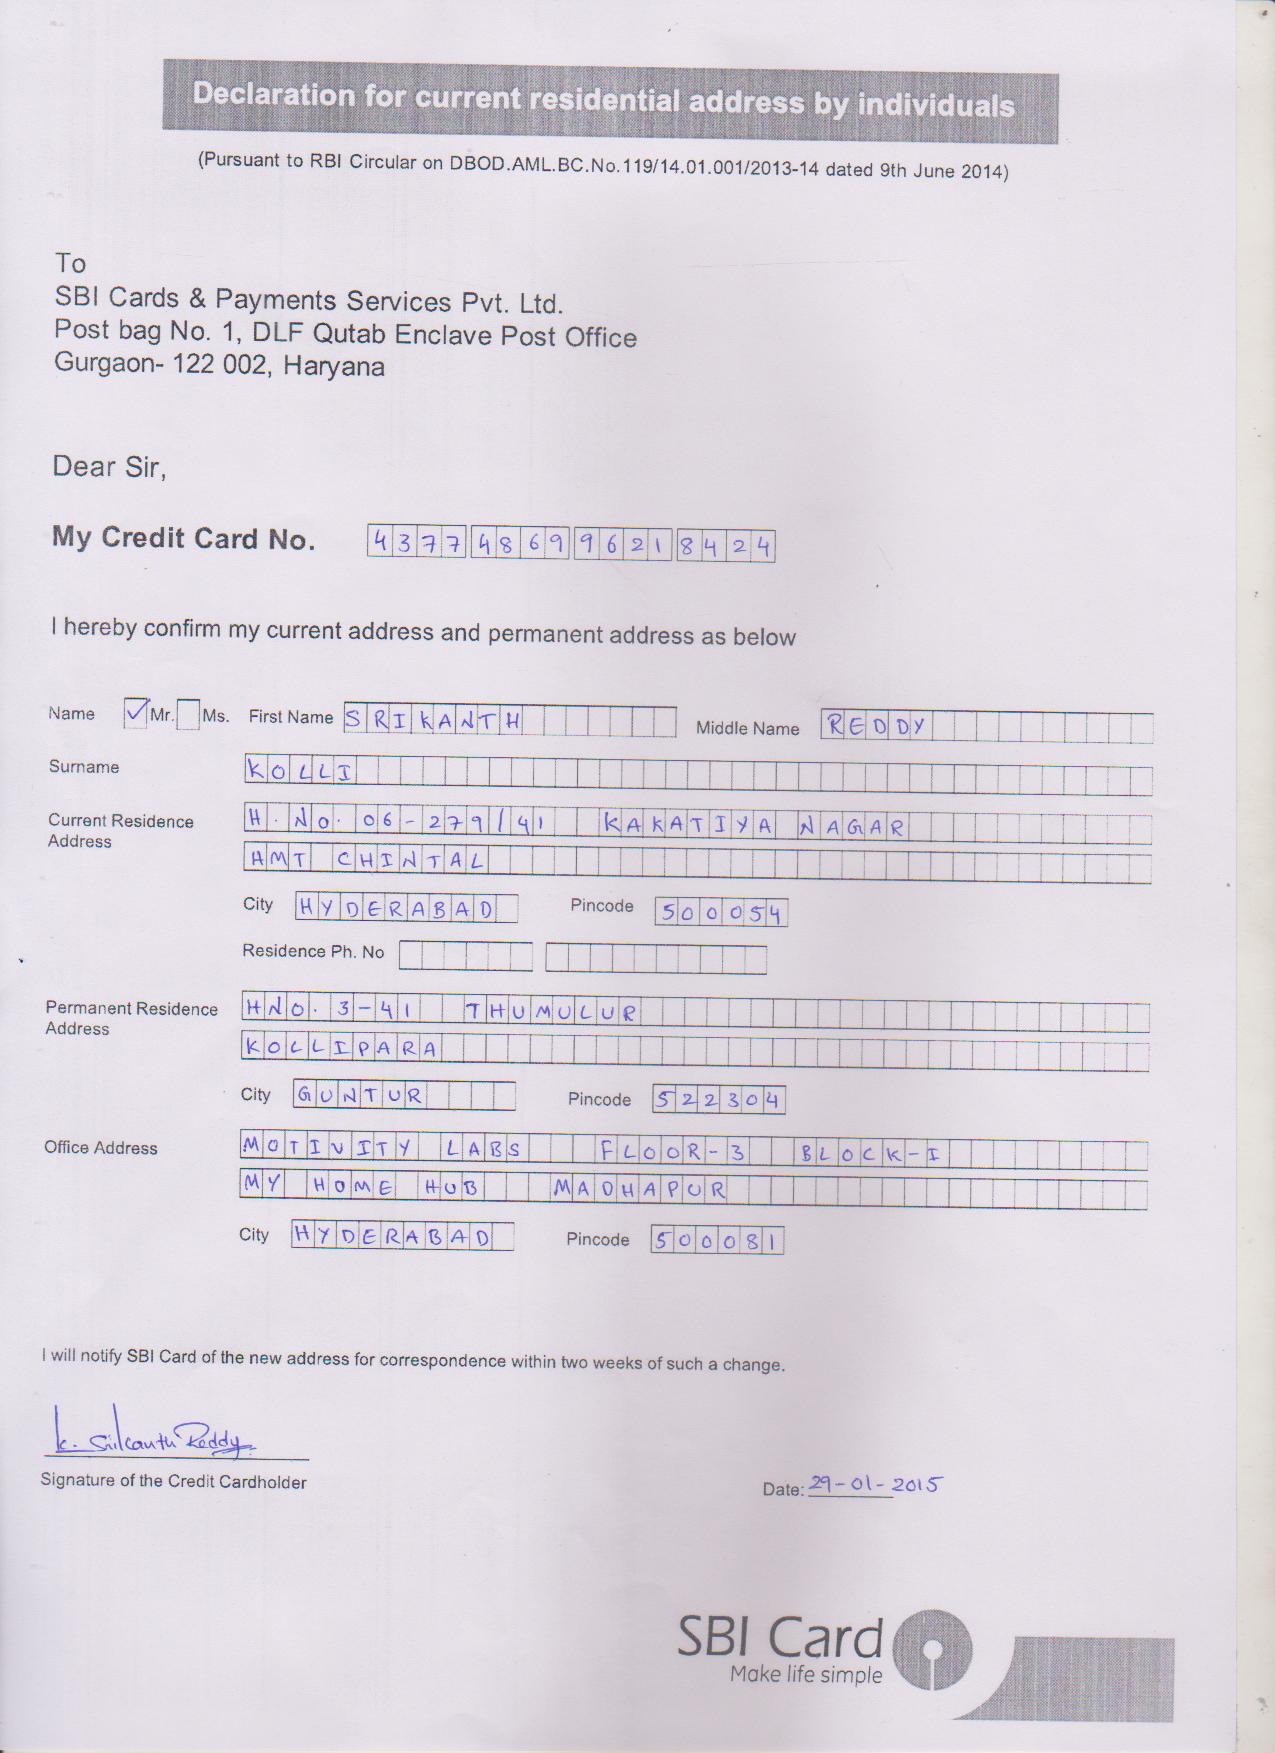 Declaration for current residential address by individuals
(Pursuant to RBI Circular on DBOD.AML.BC.No.119/14.01.001/2013-14 dated 9th June 2014)
To
SBI Cards & Payments Services Pvt. Ltd.
Post bag No. 1, DLF Qutab Enclave Post Office
Gurgaon- 122 002, Haryana
Dear Sir,
My Credit Card No. 4377 4869 9621 8424
I hereby confirm my current address and permanent address as below
Name Mr. Ms. First Name SRIKANTH Middle Name REDDY
Surname KOLLI
Current Residence Address H.NO.06-279/41 KAKATIYA NAGAR
HMT CHINTAL
City HYDERABAD Pincode 500054
Residence Ph. No
Permanent Residence Address HNO.3-41 THUMULUR
KOLLIPARA
City GUNTUR Pincode 522304
Office Address MOTIVITY LABS FLOOR-3 BLOCK-I
MY HOME HUB MADHAPUR
City HYDERABAD Pincode 500081
I will notify SBI Card of the new address for correspondence within two weeks of such a change.
K. Srikanth Reddy
Signature of the Credit Cardholder
Date: 29-01-2015
SBI Card
Make life simple